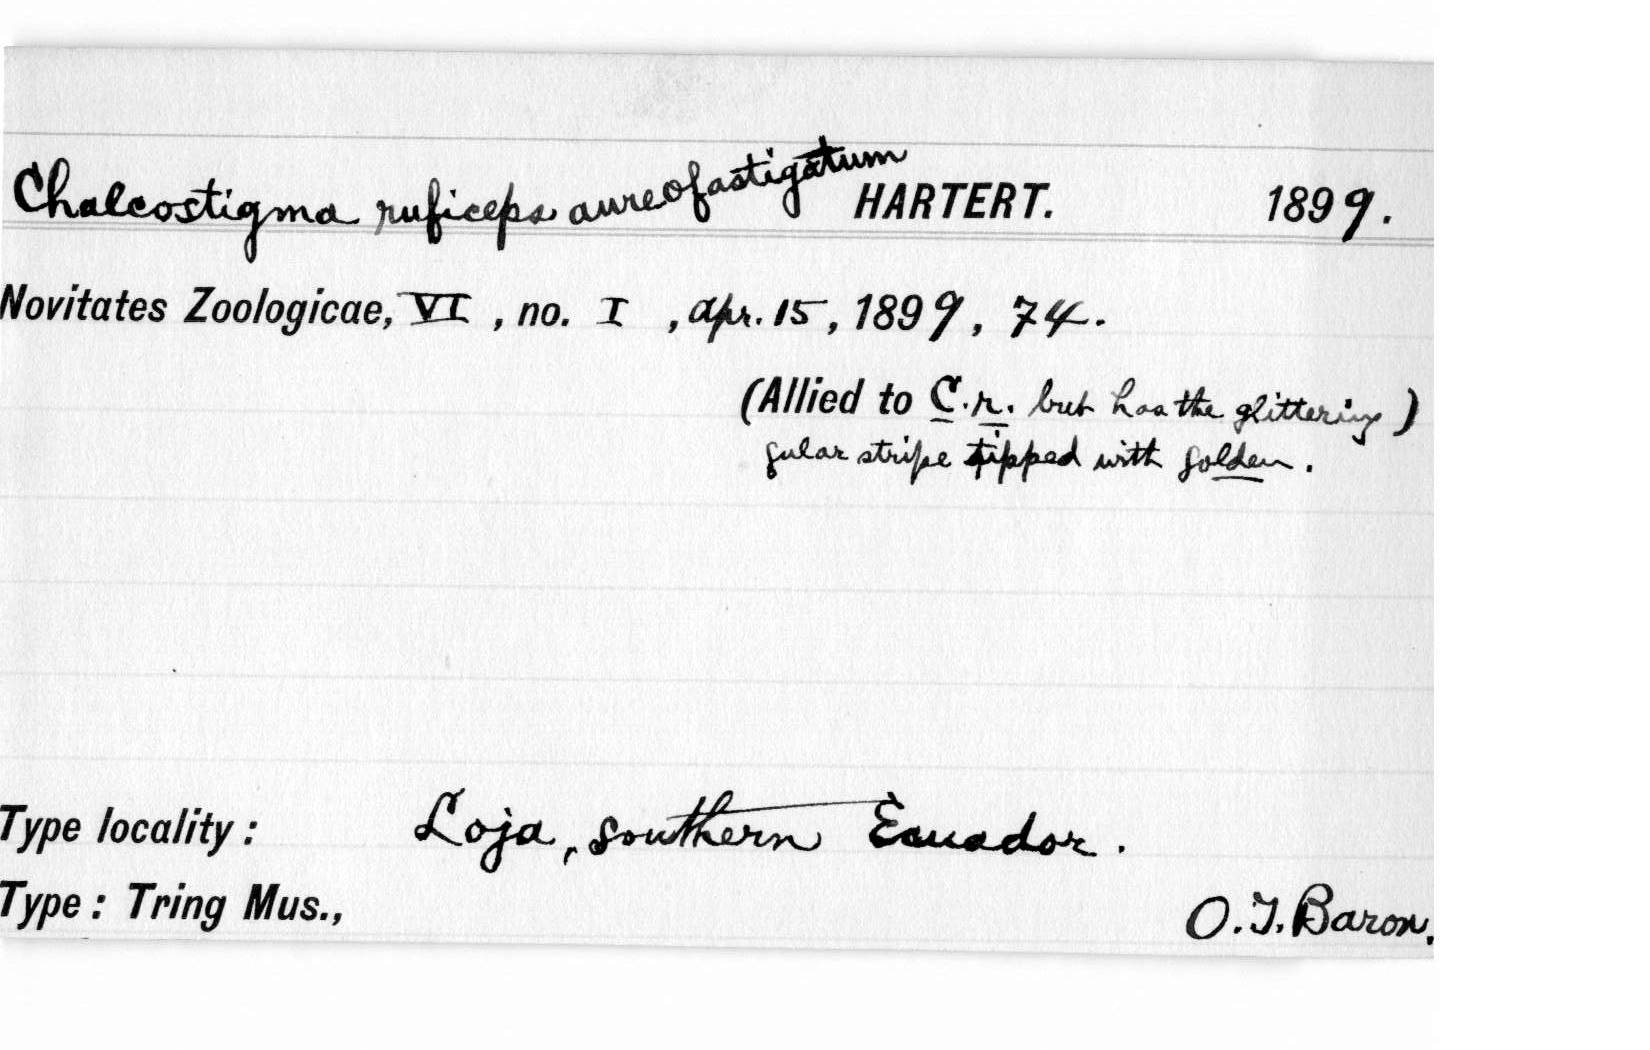 Chalcostigma ruficeps aureofastigatum HARTERT. 1899.
Novitates Zoologicae, VI, no. I, Apr. 15, 1899, 74.
(Allied to C. r. but has the glittering)
gular stripe tipped with golden.
Type locality: Loja, southern Ecuador.
Type: Tring Mus., O.T. Baron.